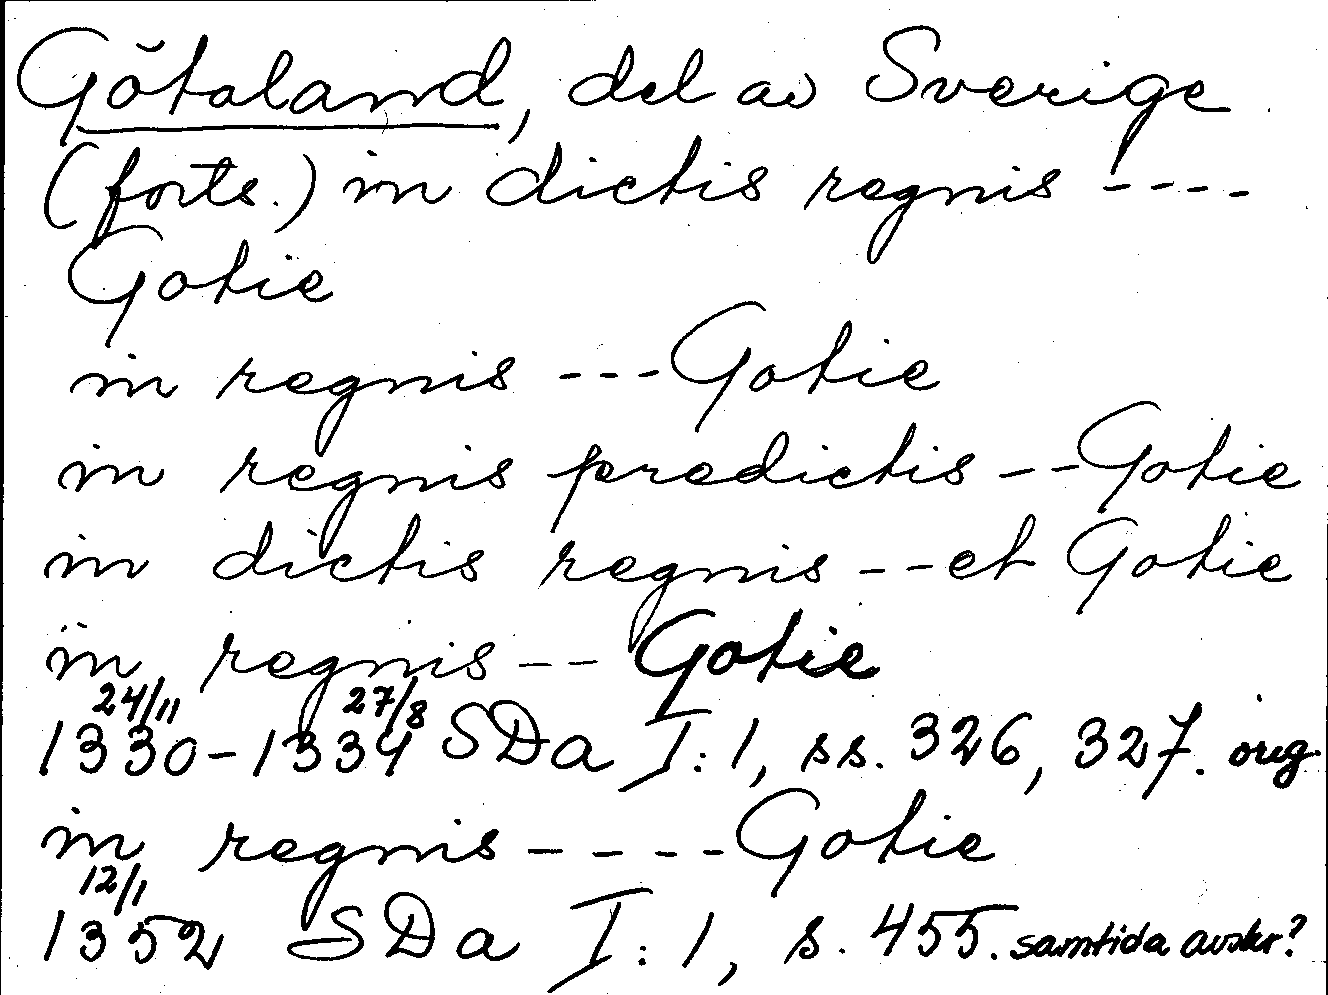 Götaland, del av Sverige
(forts.) in dictis regnis ----
Gotie
in regnis --- Gotie
in regnis predictis -- Gotie
in dictis regnis -- et Gotie
in regnis -- Gotie
24/11 27/8
1330-1334 SDa I:1, ss. 326, 327. orig
in regnis ---- Gotie
12/1
1352 SDa I:1, s. 455. samtida avskr?